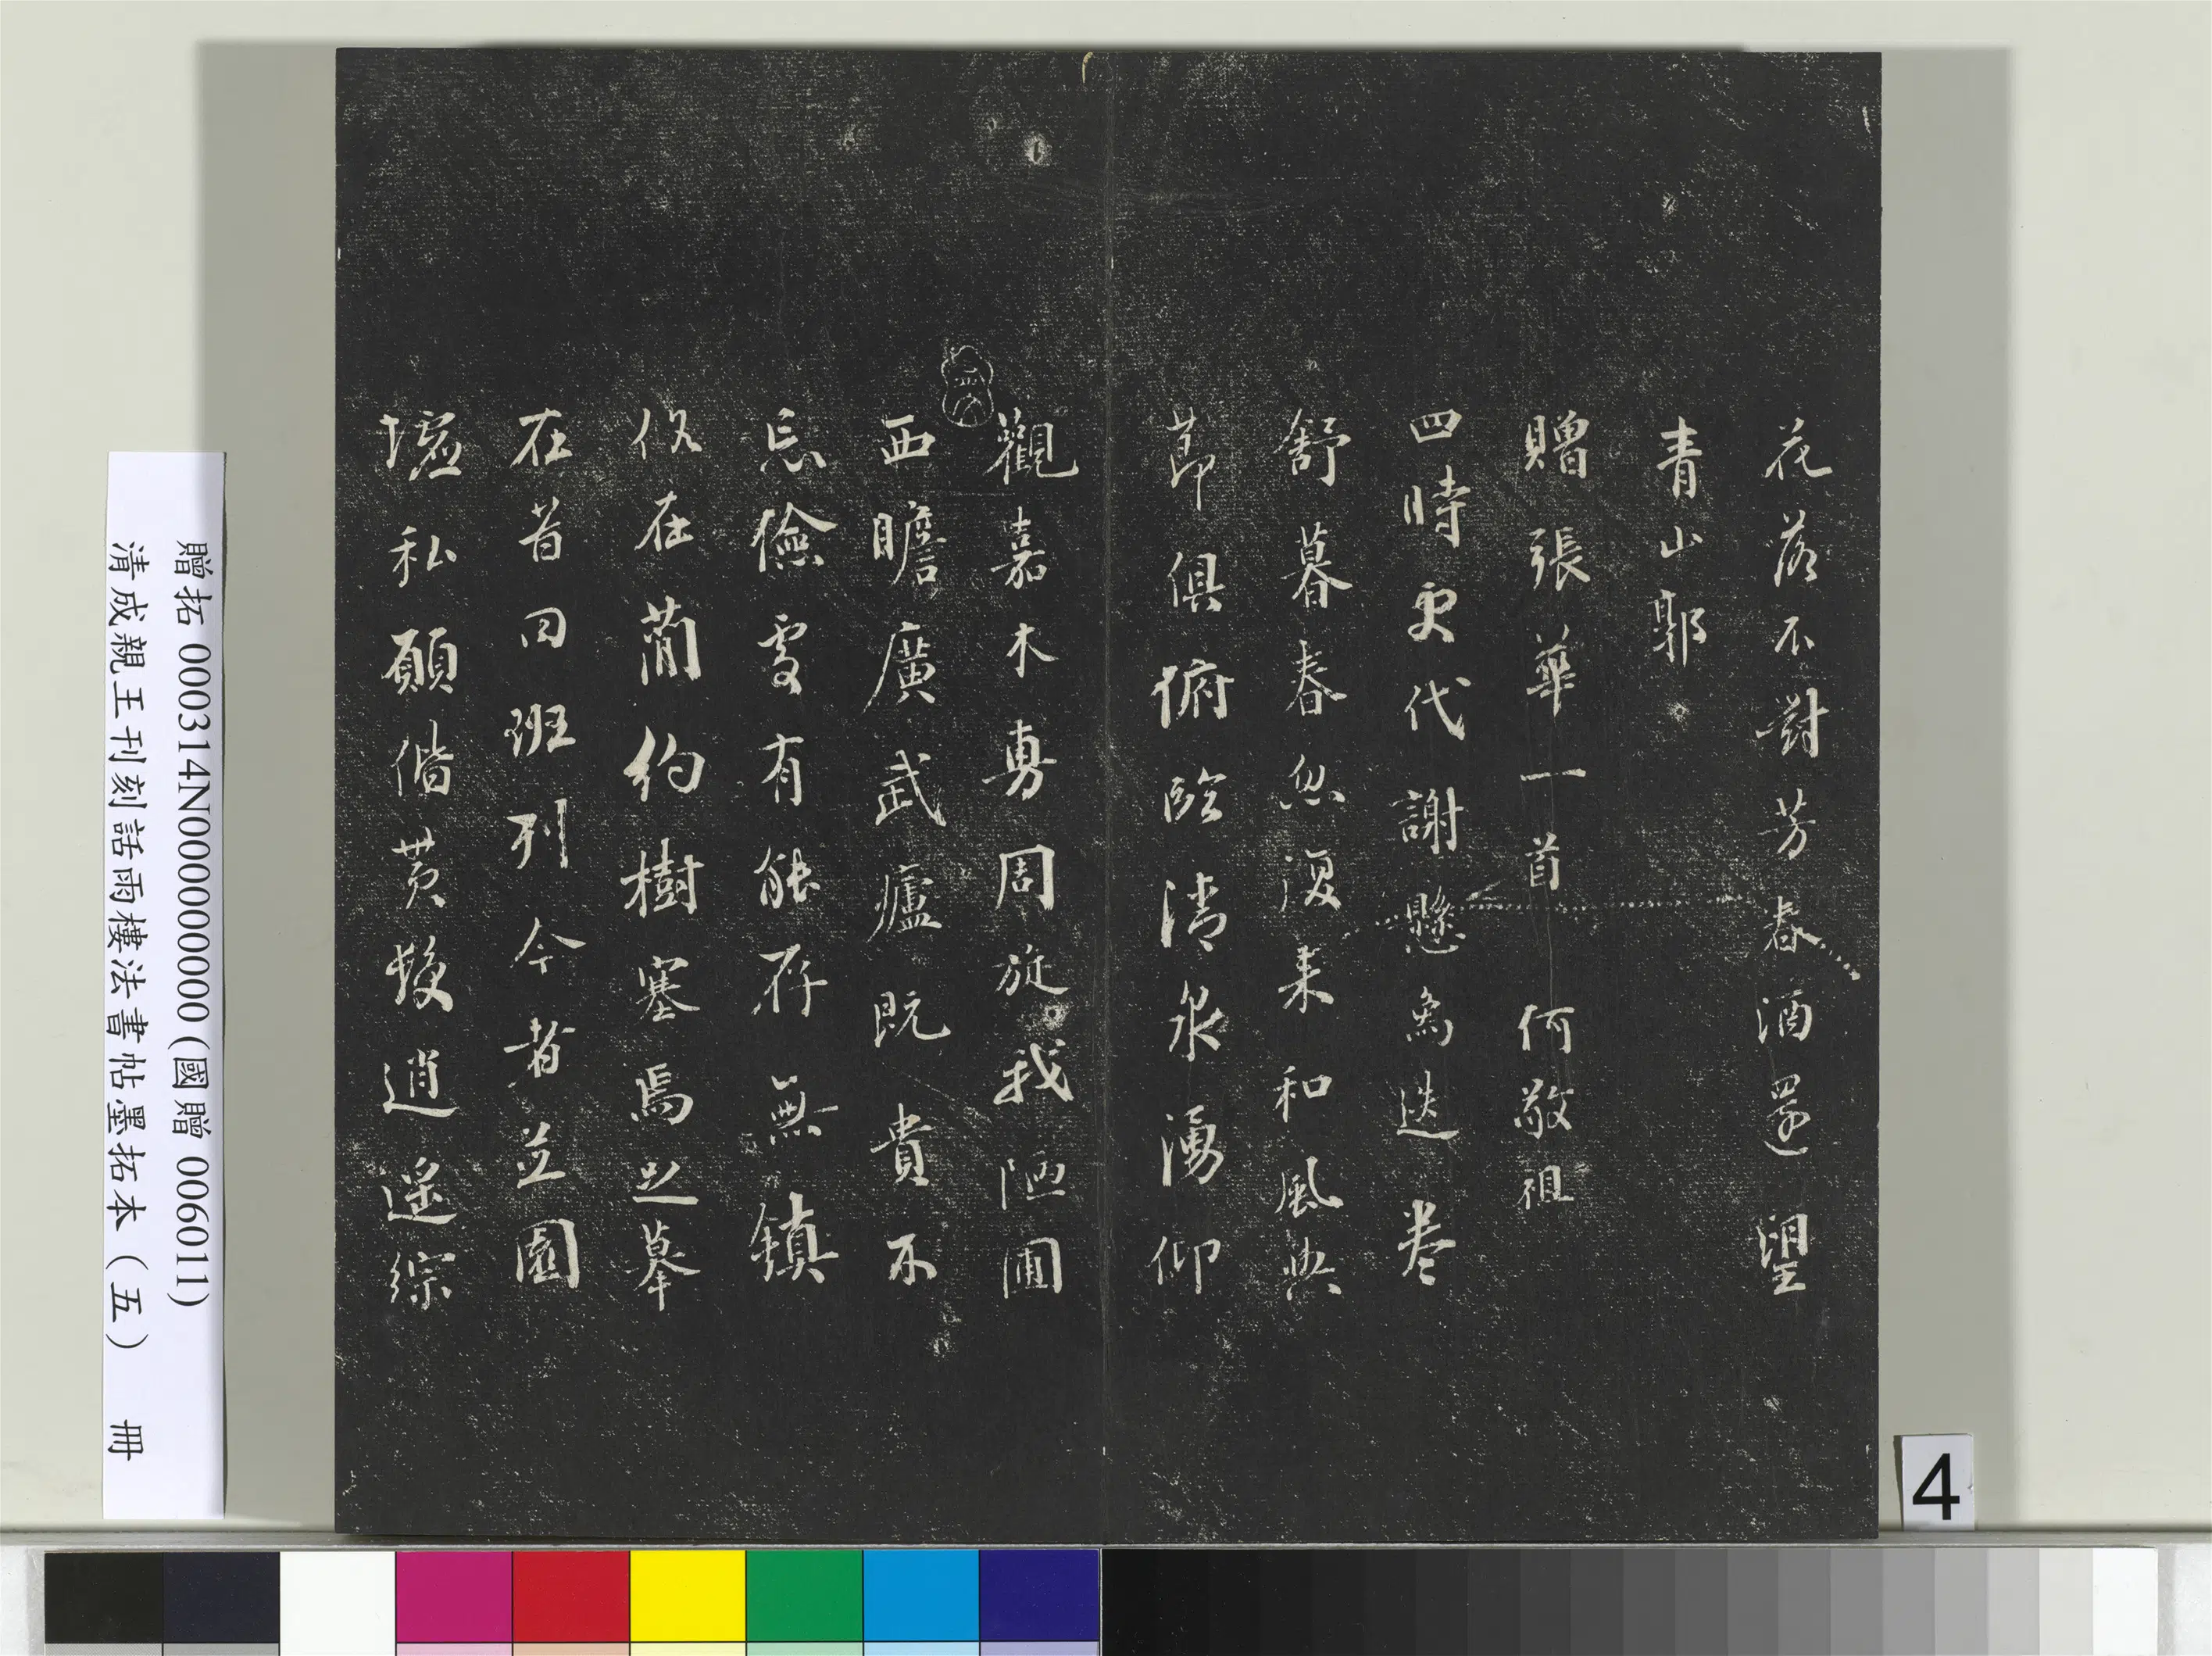 花落不對芳春酒還望
青山郭
贈張華一首 何敬祖
四時更代謝懸象迭卷
舒暮春忽復来和風與
節俱俯臨清泉湧仰
觀嘉木旉周旋我陋圃
西瞻廣武廬既貴不
忘儉處有能存無鎮
俗在蕳約樹塞焉足摹
在昔同班列今者並園
墟私願偕黄髮逍遥綜
贈拓 000314N000000000(國贈 006011)
清成親王刊刻話雨樓法書帖墨拓本（五） 冊
4